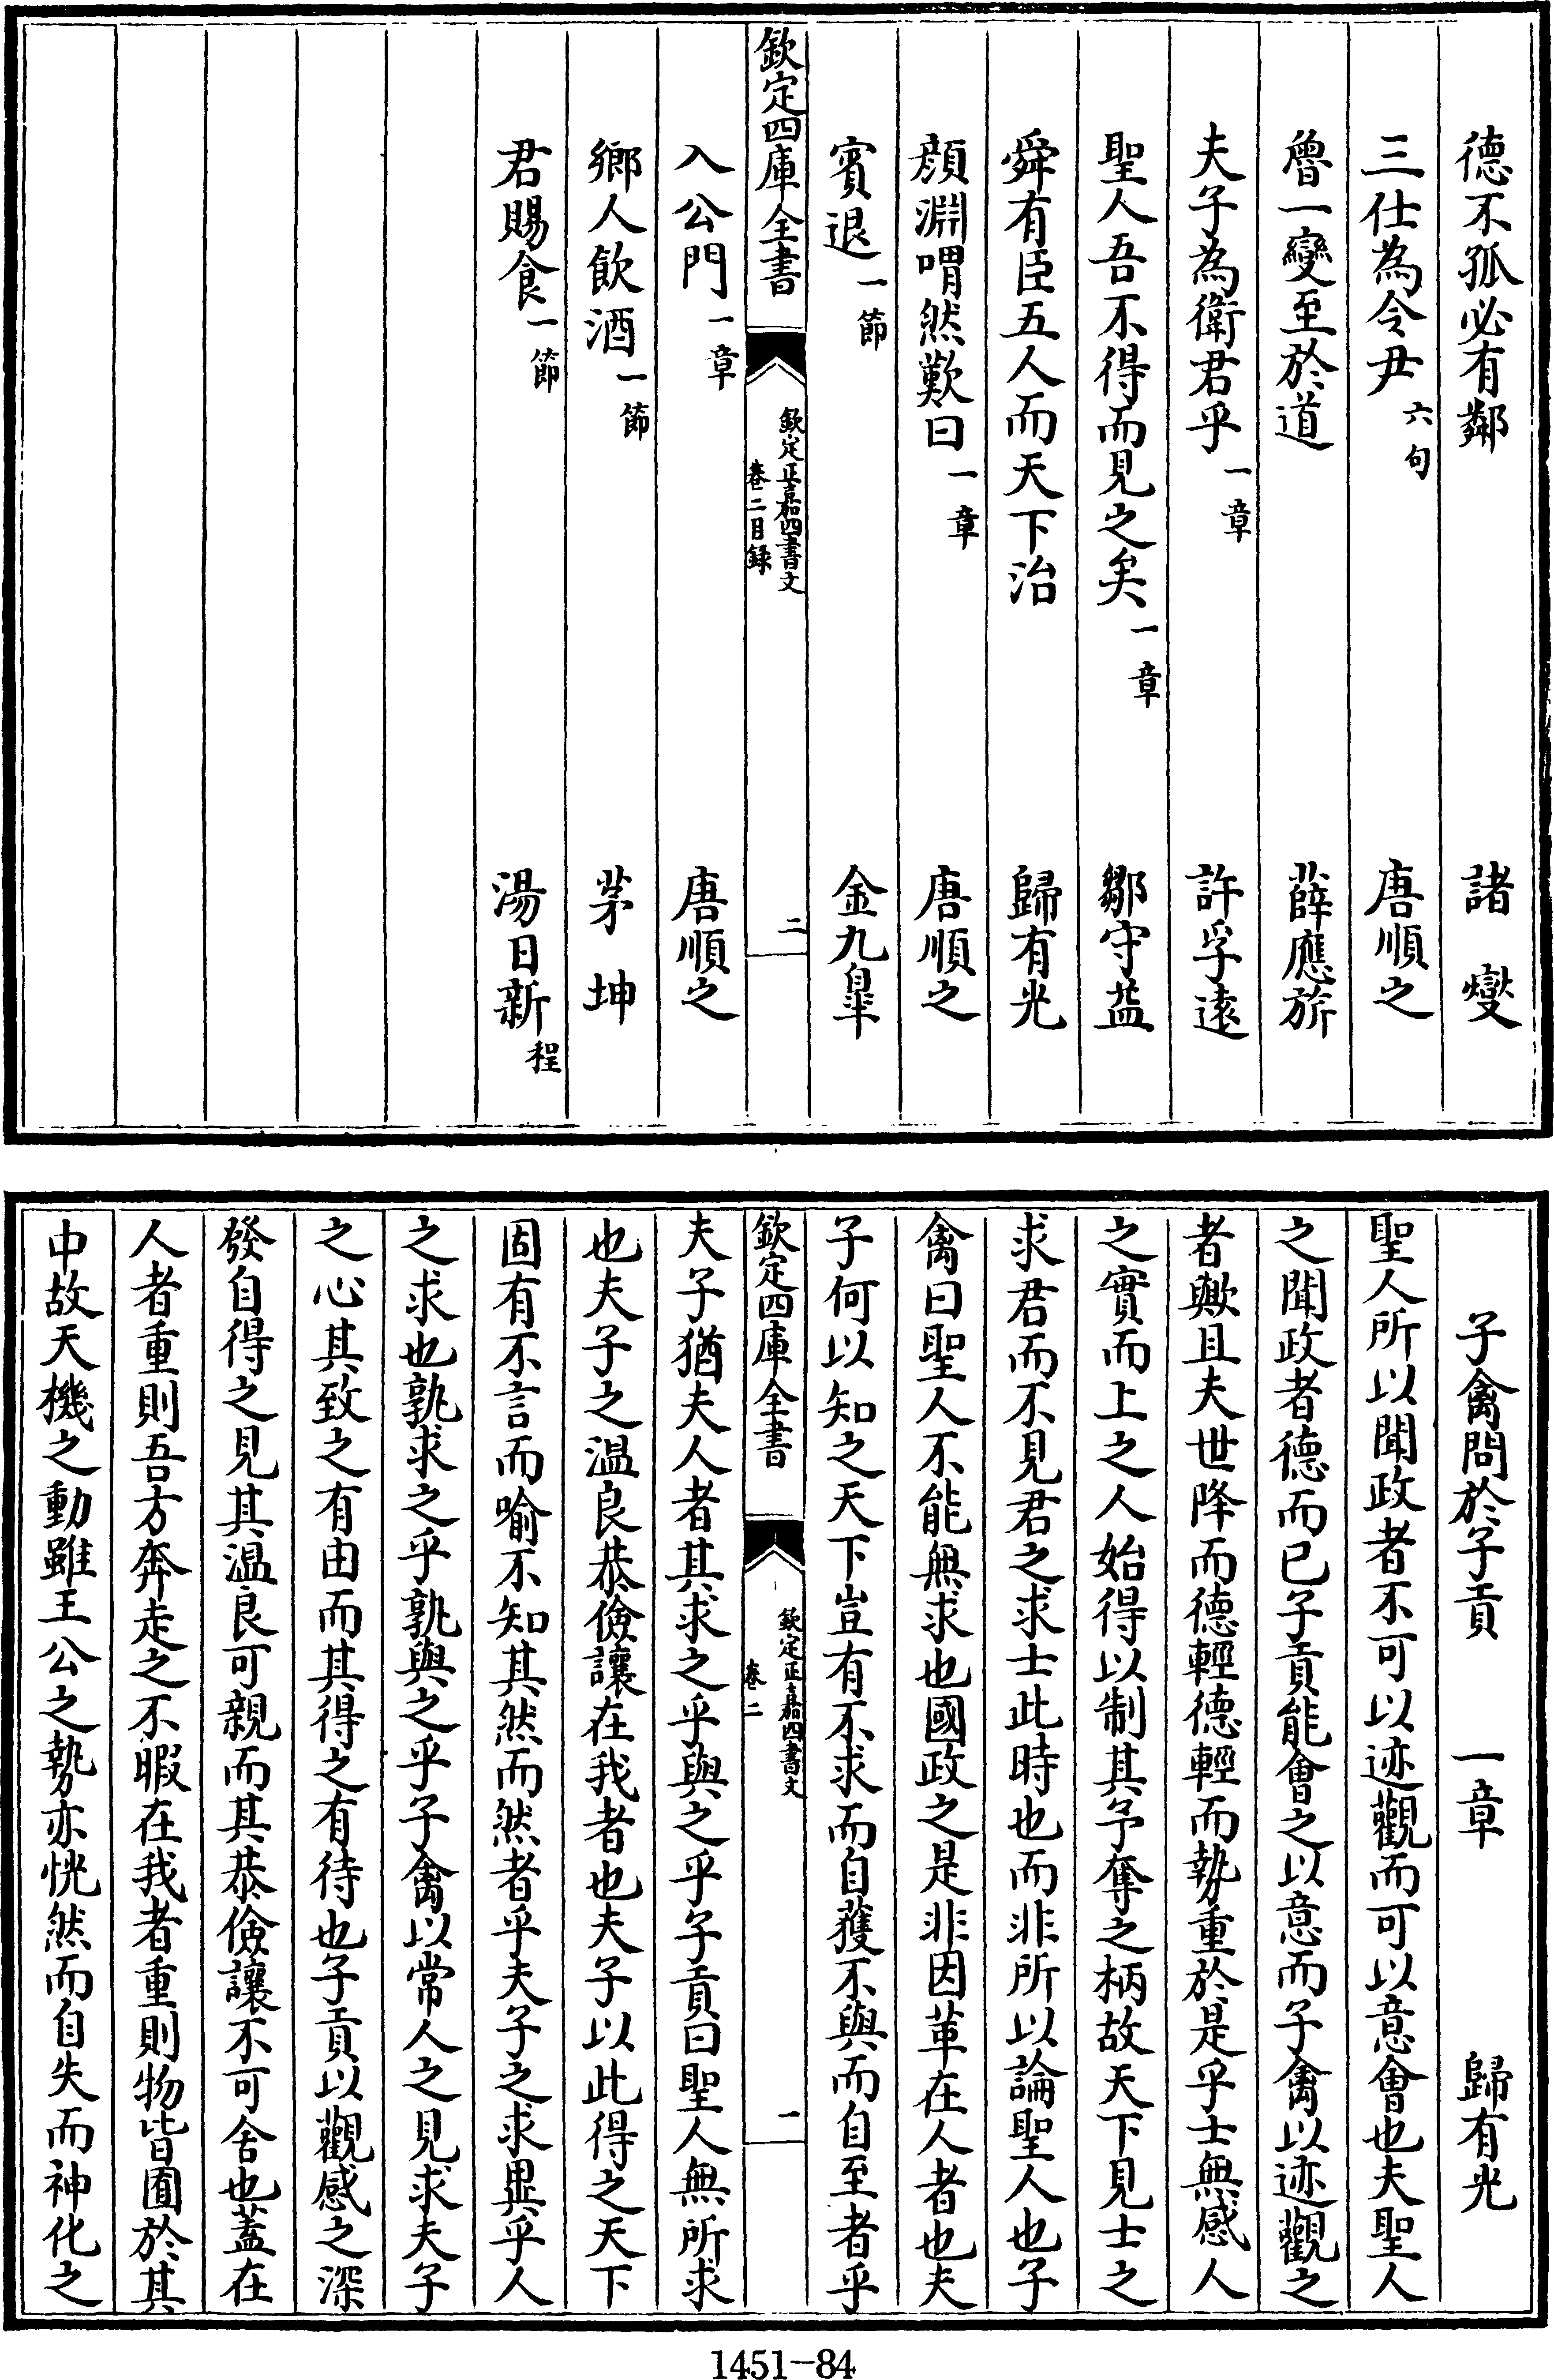 德不孤必有鄰 諸燮
三仕為令尹六句 唐順之
魯一變至於道 薛應旂
夫子為衛君乎一章 許孚遠
聖人吾不得而見之矣一章 鄒守益
舜有臣五人而天下治 歸有光
顔淵喟然歎曰一章 唐順之
賓退一節 金九臯
欽定四庫全書
欽定正嘉四書文
卷二目録
二
入公門一章 唐順之
鄉人飲酒一節 茅坤
君賜食一節 湯日新程
子禽問於子貢 一章 歸有光
聖人所以聞政者不可以迹觀而可以意會也夫聖人
之聞政者德而已子貢能會之以意而子禽以迹觀之
者歟且夫世降而德輕德輕而勢重於是乎士無感人
之實而上之人始得以制其予奪之柄故天下見士之
求君而不見君之求士此時也而非所以論聖人也子
禽曰聖人不能無求也國政之是非因革在人者也夫
子何以知之天下豈有不求而自獲不與而自至者乎
欽定四庫全書
欽定正嘉四書文
卷二
一
夫子猶夫人者其求之乎與之乎子貢曰聖人無所求
也夫子之温良恭儉讓在我者也夫子以此得之天下
固有不言而喻不知其然而然者乎夫子之求異乎人
之求也孰求之乎孰與之乎子禽以常人之見求夫子
之心其致之有由而其得之有待也子貢以觀感之深
發自得之見其温良可親而其恭儉讓不可舍也蓋在
人者重則吾方奔走之不暇在我者重則物皆囿於其
中故天機之動雖王公之勢亦恍然而自失而神化之
1451-84